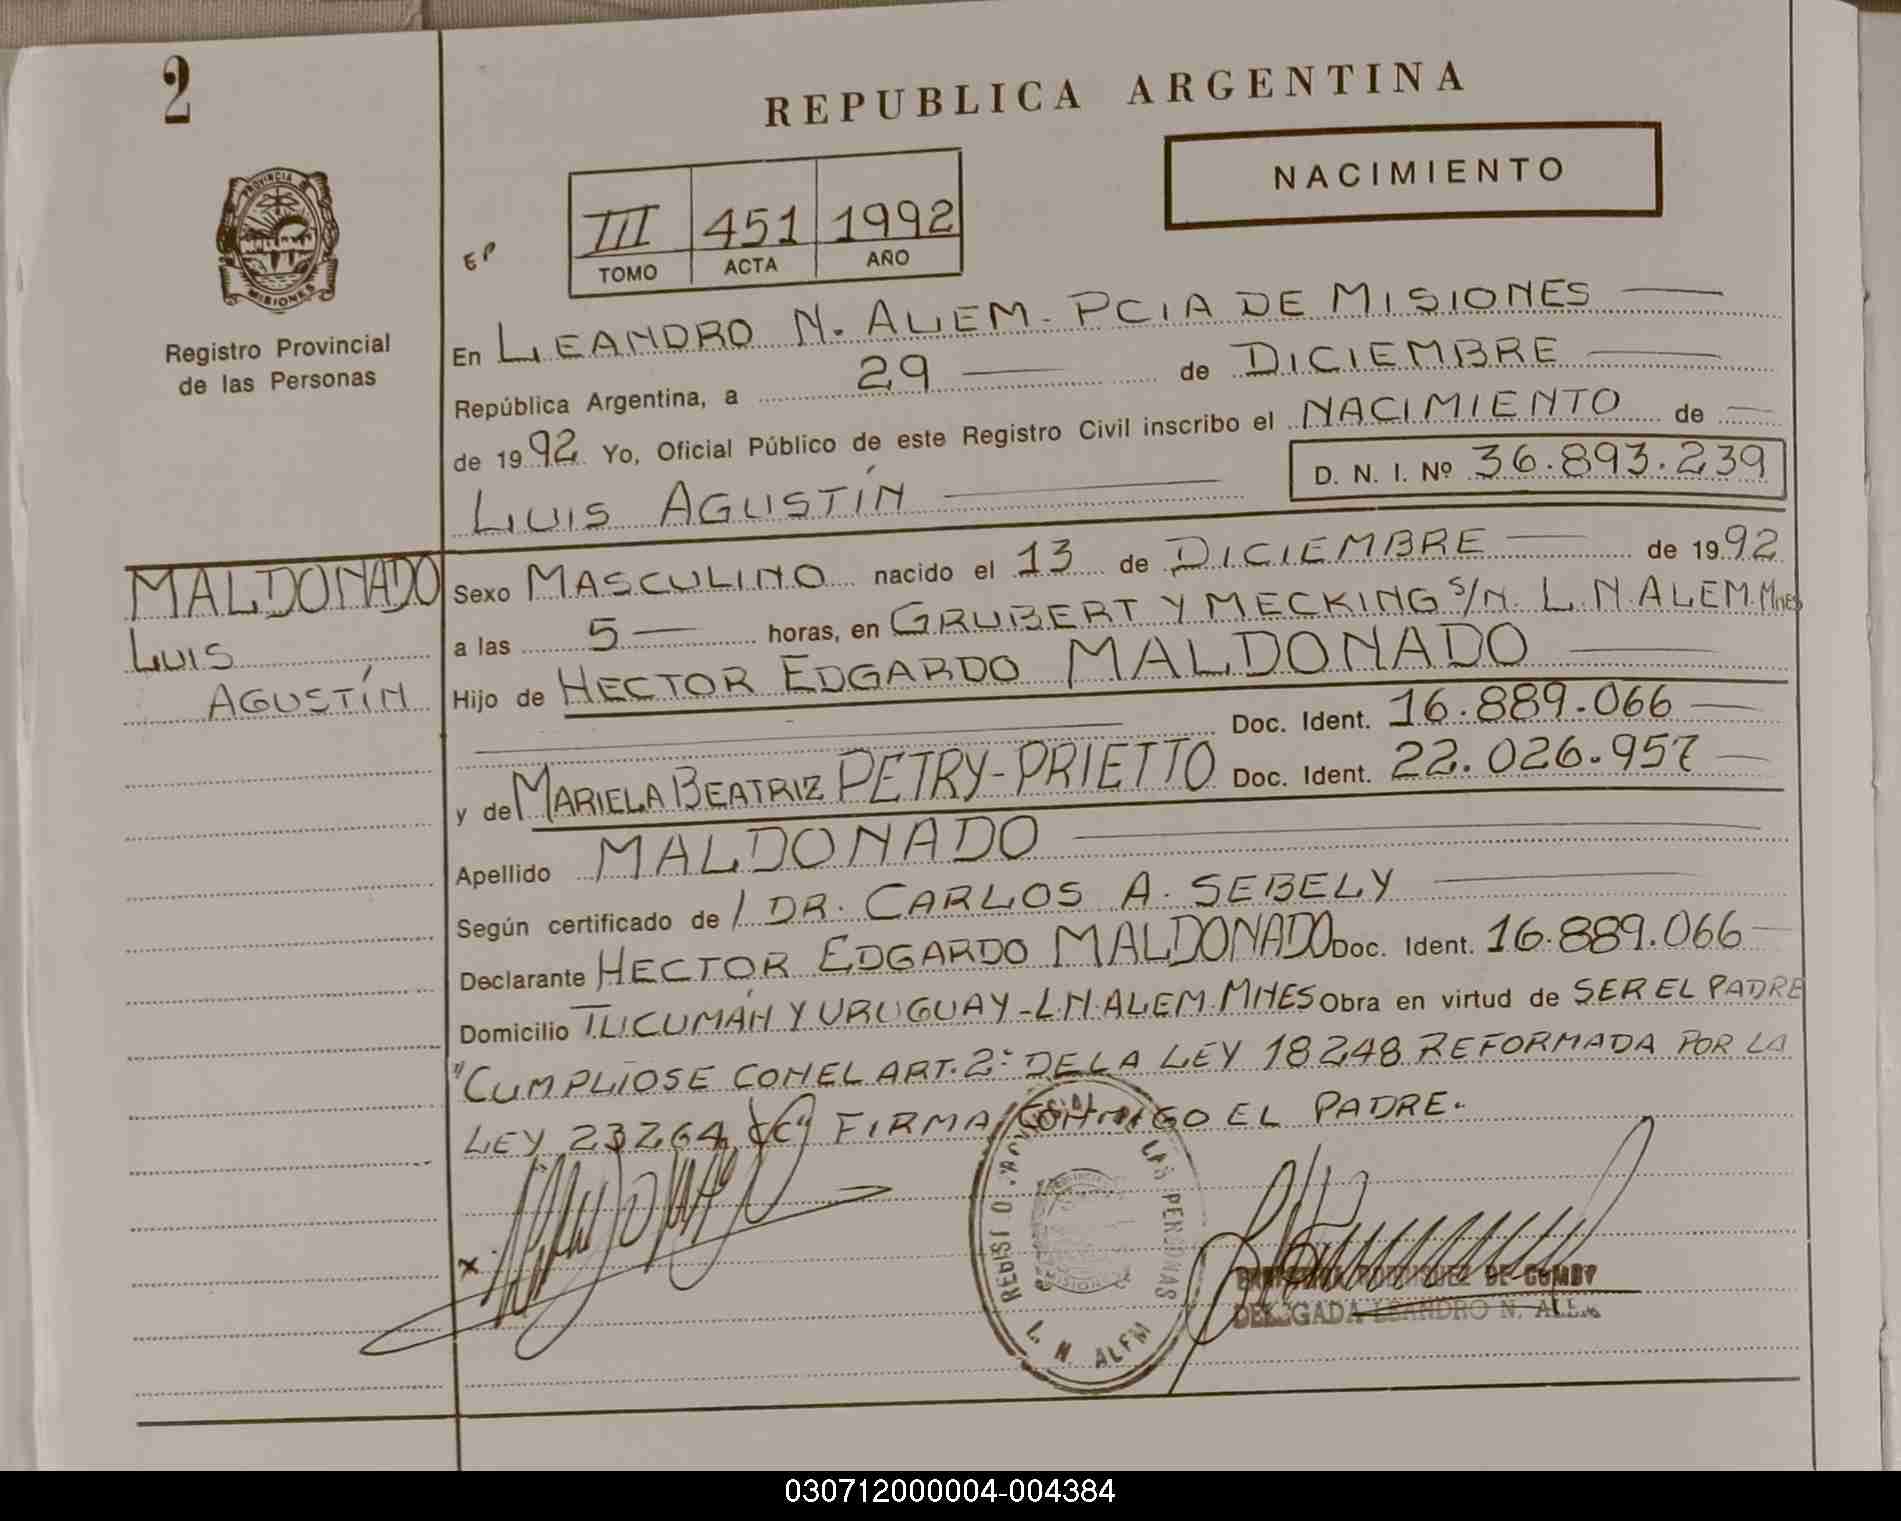 2
REPUBLICA ARGENTINA
NACIMIENTO
PROVINCIA DE
MISIONES
Registro Provincial
de las Personas
EP
III 451 1992
TOMO ACTA AÑO
En LEANDRO N. ALEM - PCIA DE MISIONES
República Argentina, a 29 de DICIEMBRE
de 1992 Yo, Oficial Público de este Registro Civil inscribo el NACIMIENTO de
LUIS AGUSTÍN D. N. I. Nº 36.893.239
MALDONADO
LUIS
AGUSTÍN
Sexo MASCULINO nacido el 13 de DICIEMBRE de 1992
a las 5 horas, en GRUBERT Y MECKING S/N. L. N. ALEM. MNES
Hijo de HECTOR EDGARDO MALDONADO
Doc. Ident. 16.889.066
y de MARIELA BEATRIZ PETRY-PRIETTO Doc. Ident. 22.026.957
Apellido MALDONADO
Según certificado de / DR. CARLOS A. SEBELY
Declarante HECTOR EDGARDO MALDONADO Doc. Ident. 16.889.066
Domicilio TUCUMÁN Y URUGUAY - L.N. ALEM. MNES Obra en virtud de SER EL PADRE
"CUMPLIOSE CON EL ART. 2º DE LA LEY 18248 REFORMADA POR LA
LEY 23264 FIRMA CONMIGO EL PADRE.
x
LAS PERSONAS
L. N. ALEM
RODRIGUEZ DE
DELEGADA LEANDRO N. ALEM
030712000004-004384